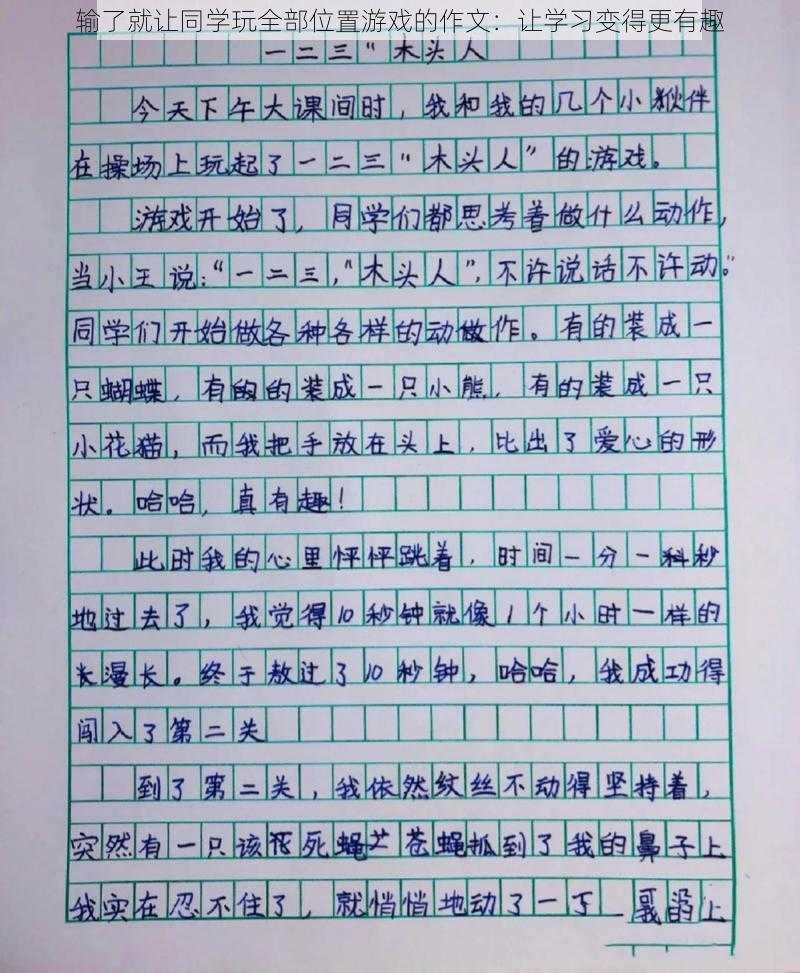 输了就让同学玩全部位置游戏的作文：让学习变得更有趣
一二三“木头人
今天下午大课间时，我和我的几个小伙伴
在操场上玩起了一二三“木头人”的游戏。
游戏开始了，同学们都思考着做什么动作，
当小王说：“一二三，“木头人”，不许说话不许动。”
同学们开始做各种各样的动做作。有的装成一
只蝴蝶，有的的装成一只小熊，有的装成一只
小花猫，而我把手放在头上，比出了爱心的形
状。哈哈，真有趣！
此时我的心里怦怦跳着，时间一分一秒
地过去了，我觉得10秒钟就像1个小时一样的
长漫长。终于熬过了10秒钟，哈哈，我成功得
闯入了第二关
到了第二关，我依然纹丝不动得坚持着，
突然有一只该死蝇苍蝇抓到了我的鼻子上
我实在忍不住了，就悄悄地动了一下 上